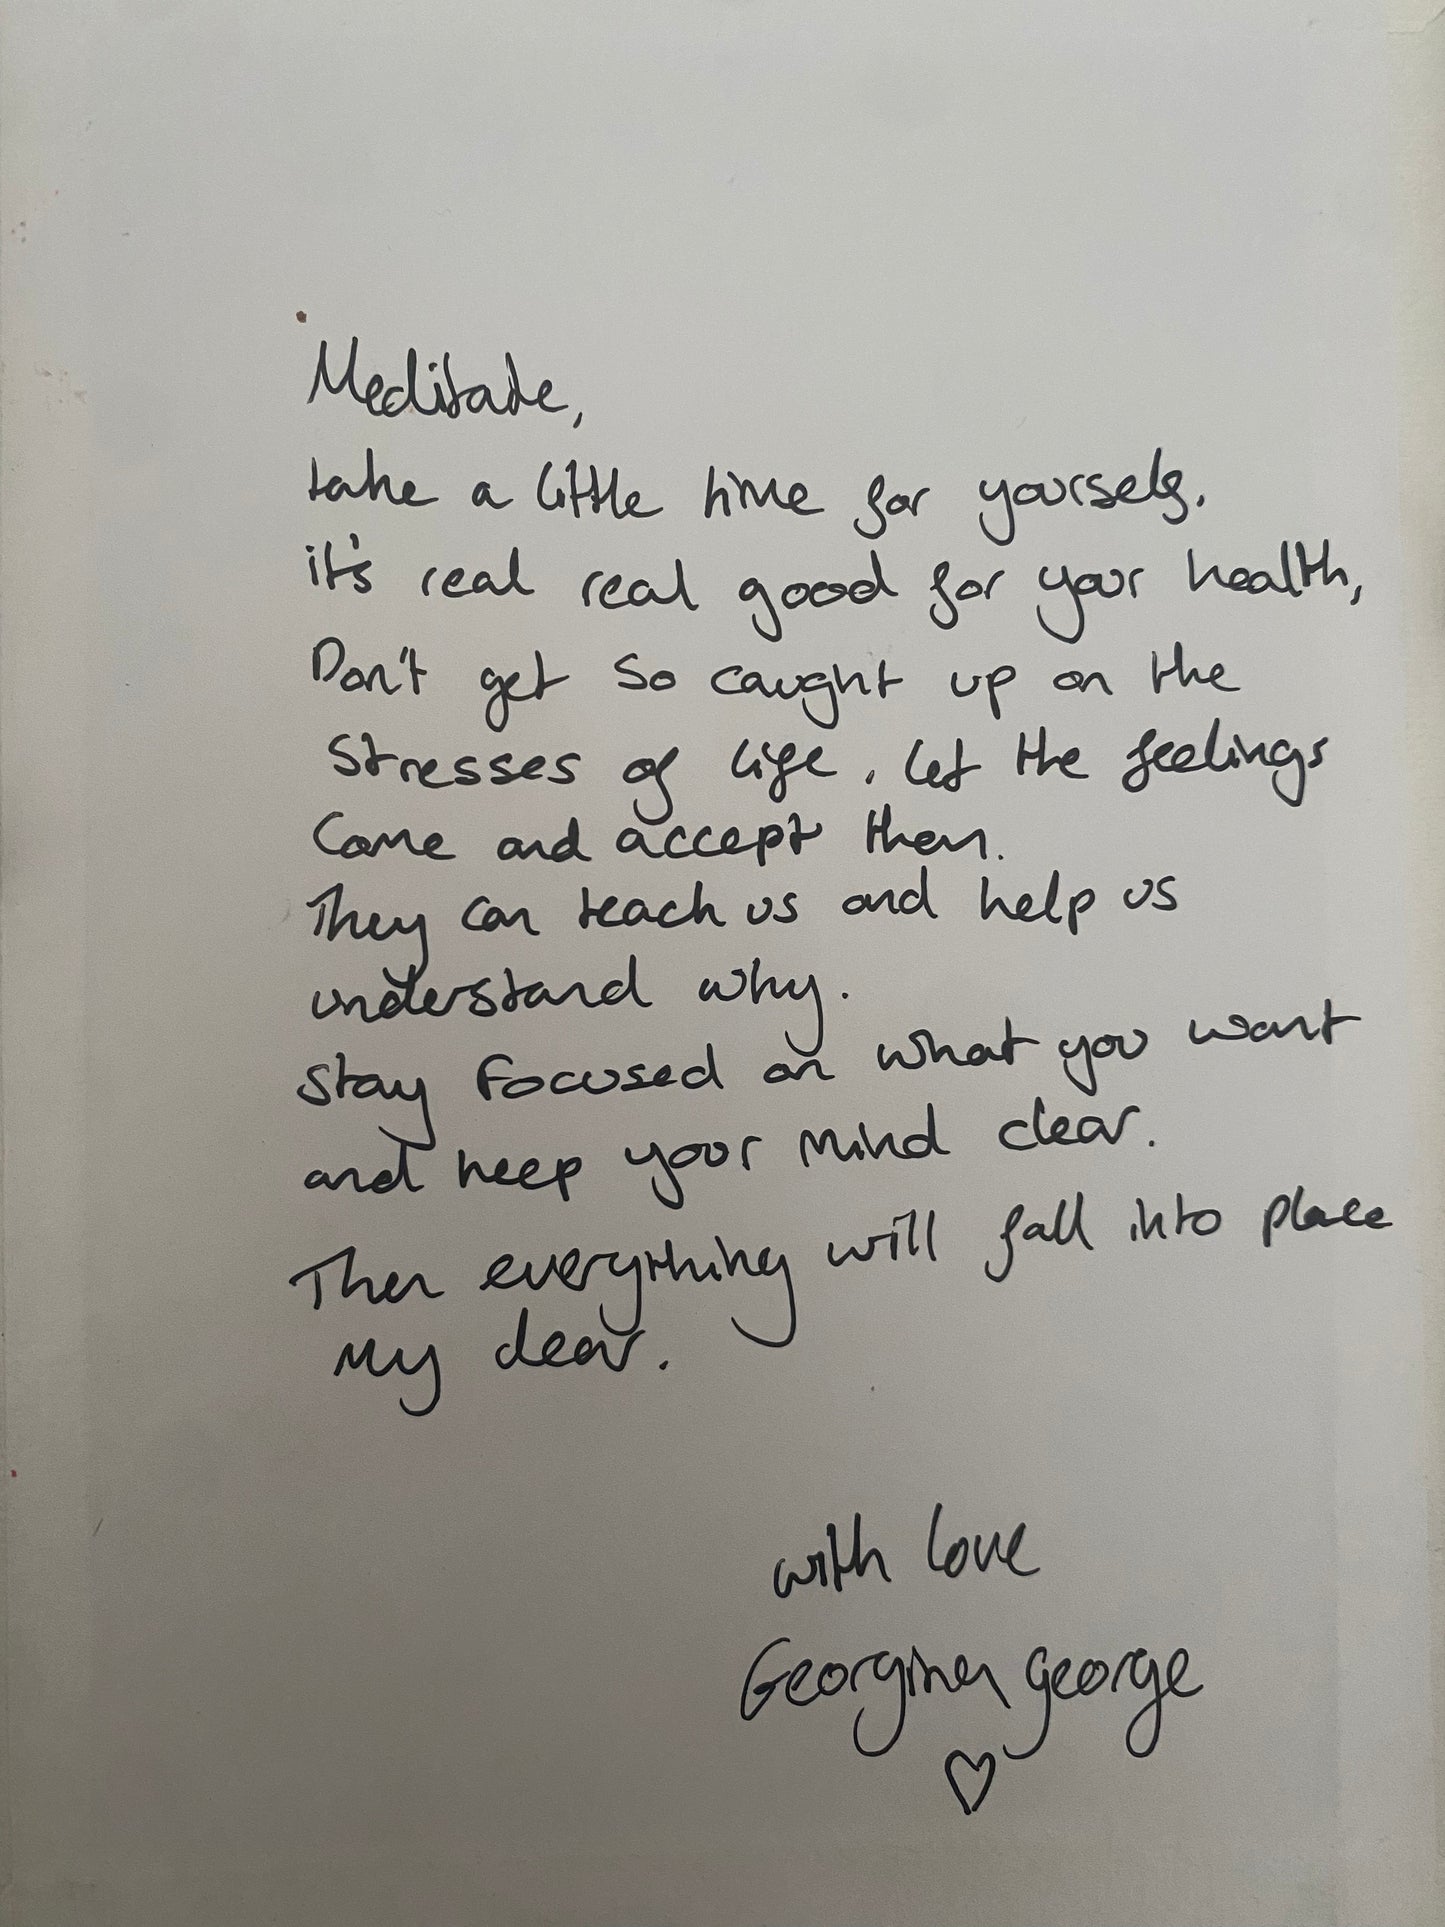 Meditate,
take a little time for yourself.
it's real real good for your health,
Don't get so caught up on the
stresses of life. let the feelings
come and accept them.
They can teach us and help us
understand why.
Stay focused on what you want
and keep your mind clear.
Then everything will fall into place
my dear.
with love
Georgina george
♡